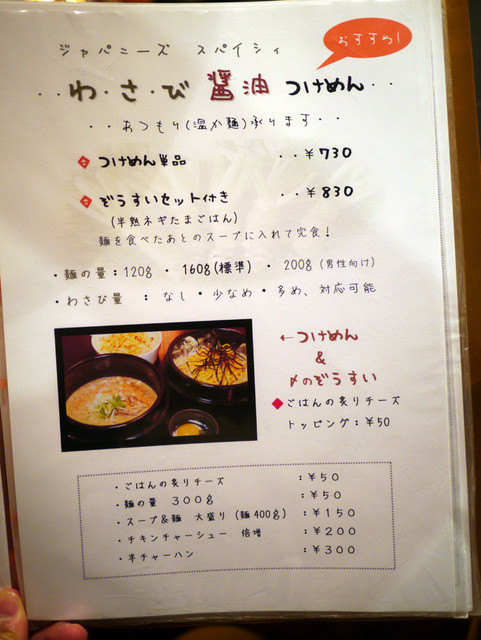 おすすめ!
ジャパニーズ スパイシィ
・・わ・さ・び 醤油 つけめん・・
・・あつもり(温か麺)承ります・・
つけめん単品 ・・¥730
ぞうすいセット付き ・・¥830
(半熟ネギたまごはん)
麺を食べたあとのスープに入れて完食!
・麺の量:120g ・ 160g(標準) ・ 200g(男性向け)
・わさび量 : なし・少なめ・多め、対応可能
←つけめん
&
〆のぞうすい
◆ごはんの炙りチーズ
トッピング:¥50
・ごはんの炙りチーズ :¥50
・麺の量 300g :¥50
・スープ&麺 大盛り(麺400g) :¥150
・チキンチャーシュー 倍増 :¥200
・半チャーハン :¥300